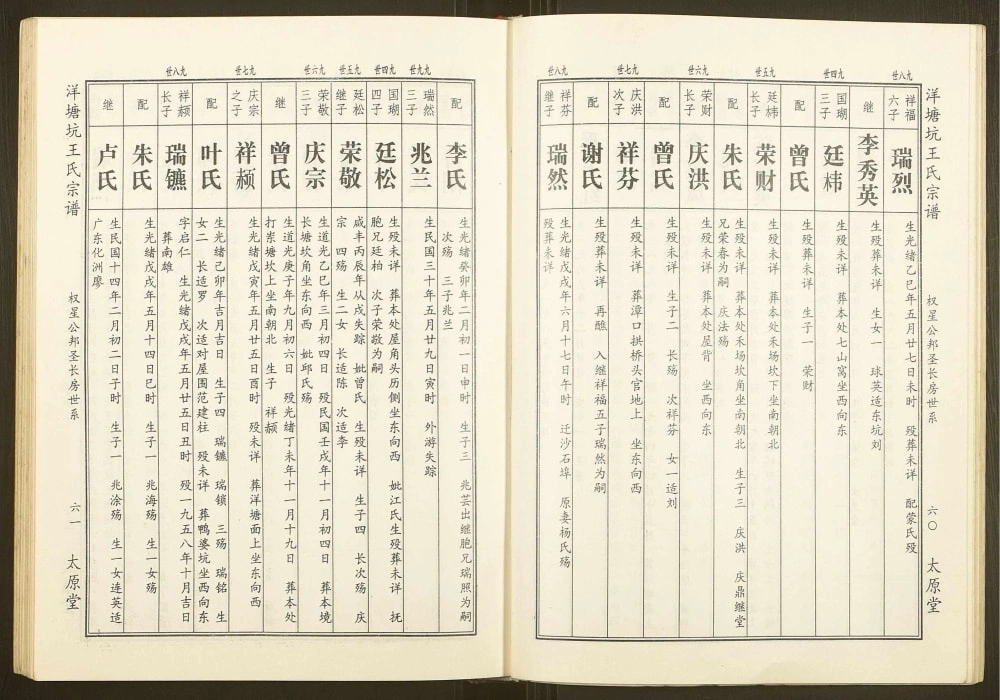 洋塘坑王氏宗谱
权星公邦圣长房世系
六〇
太原堂
九八世
祥福六子
瑞烈
生光绪乙巳年五月廿七日未时 殁葬未详 配蒙氏殁
继
李秀英
生殁葬未详 生女一 球英适东坑刘
九四世
国瑚三子
廷桙
生殁未详 葬本处七山窝坐西向东
配
曾氏
生殁葬未详 生子一 荣财
九五世
廷桙长子
荣财
生殁未详 葬本处禾场坎下坐南朝北
配
朱氏
生殁未详 葬本处禾场坎角坐南朝北 生子三 庆洪 庆鼎继堂
兄荣春为嗣 庆法殇
九六世
荣财长子
庆洪
生殁未详 葬本处屋背 坐西向东
配
曾氏
生殁葬未详 生子二 长殇 次祥芬 女一适刘
九七世
庆洪次子
祥芬
生殁未详 葬漳口拱桥头官地上 坐东向西
配
谢氏
生殁葬未详 再醮 入继祥福五子瑞然为嗣
九八世
祥芬继子
瑞然
生光绪戊戌年六月十七日午时 迁沙石埠 原妻杨氏殇
殁葬未详
配
李氏
生光绪癸卯年二月初一日申时 生子三 兆芸出继胞兄瑞照为嗣
次殇 三子兆兰
九九世
瑞然三子
兆兰
生民国三十年五月廿九日寅时 外游失踪
九四世
国瑚四子
廷松
生殁未详 葬本处屋角头历侧坐东向西 妣江氏生殁葬未详 抚
胞兄廷柏 次子荣敬为嗣
九五世
廷松继子
荣敬
咸丰丙辰年从戎失踪 妣曾氏 生殁未详 生子四 长次殇 庆
宗 四殇 生二女 长适陈 次适李
九六世
荣敬三子
庆宗
生道光乙巳年三月初四日 殁民国壬戌年十一月初四日 葬本境
长塘坎角坐东向西 妣邱氏殇
继
曾氏
生道光庚子年九月初六日 殁光绪丁未年十一月十九日 葬本处
打岽塘坎上坐南朝北 生子 祥颎
九七世
庆宗之子
祥颎
生光绪戊寅年五月廿五日酉时 殁未详 葬洋塘面上坐东向西
配
叶氏
生光绪己卯年吉月吉日 生子四 瑞镳 瑞锁 三殇 瑞铭 生
女二 长适罗 次适对屋围范建柱 殁未详 葬鸭婆坑坐西向东
九八世
祥颎长子
瑞镳
字启仁 生光绪戊戌年五月廿五日丑时 殁一九五八年十月吉日
葬南雄
配
朱氏
生光绪戊戌年五月十四日巳时 生子一 兆海殇 生一女殇
继
卢氏
生民国十四年二月初二日子时 生子一 兆涂殇 生一女连英适
广东化洲廖
洋塘坑王氏宗谱
权星公邦圣长房世系
六一
太原堂